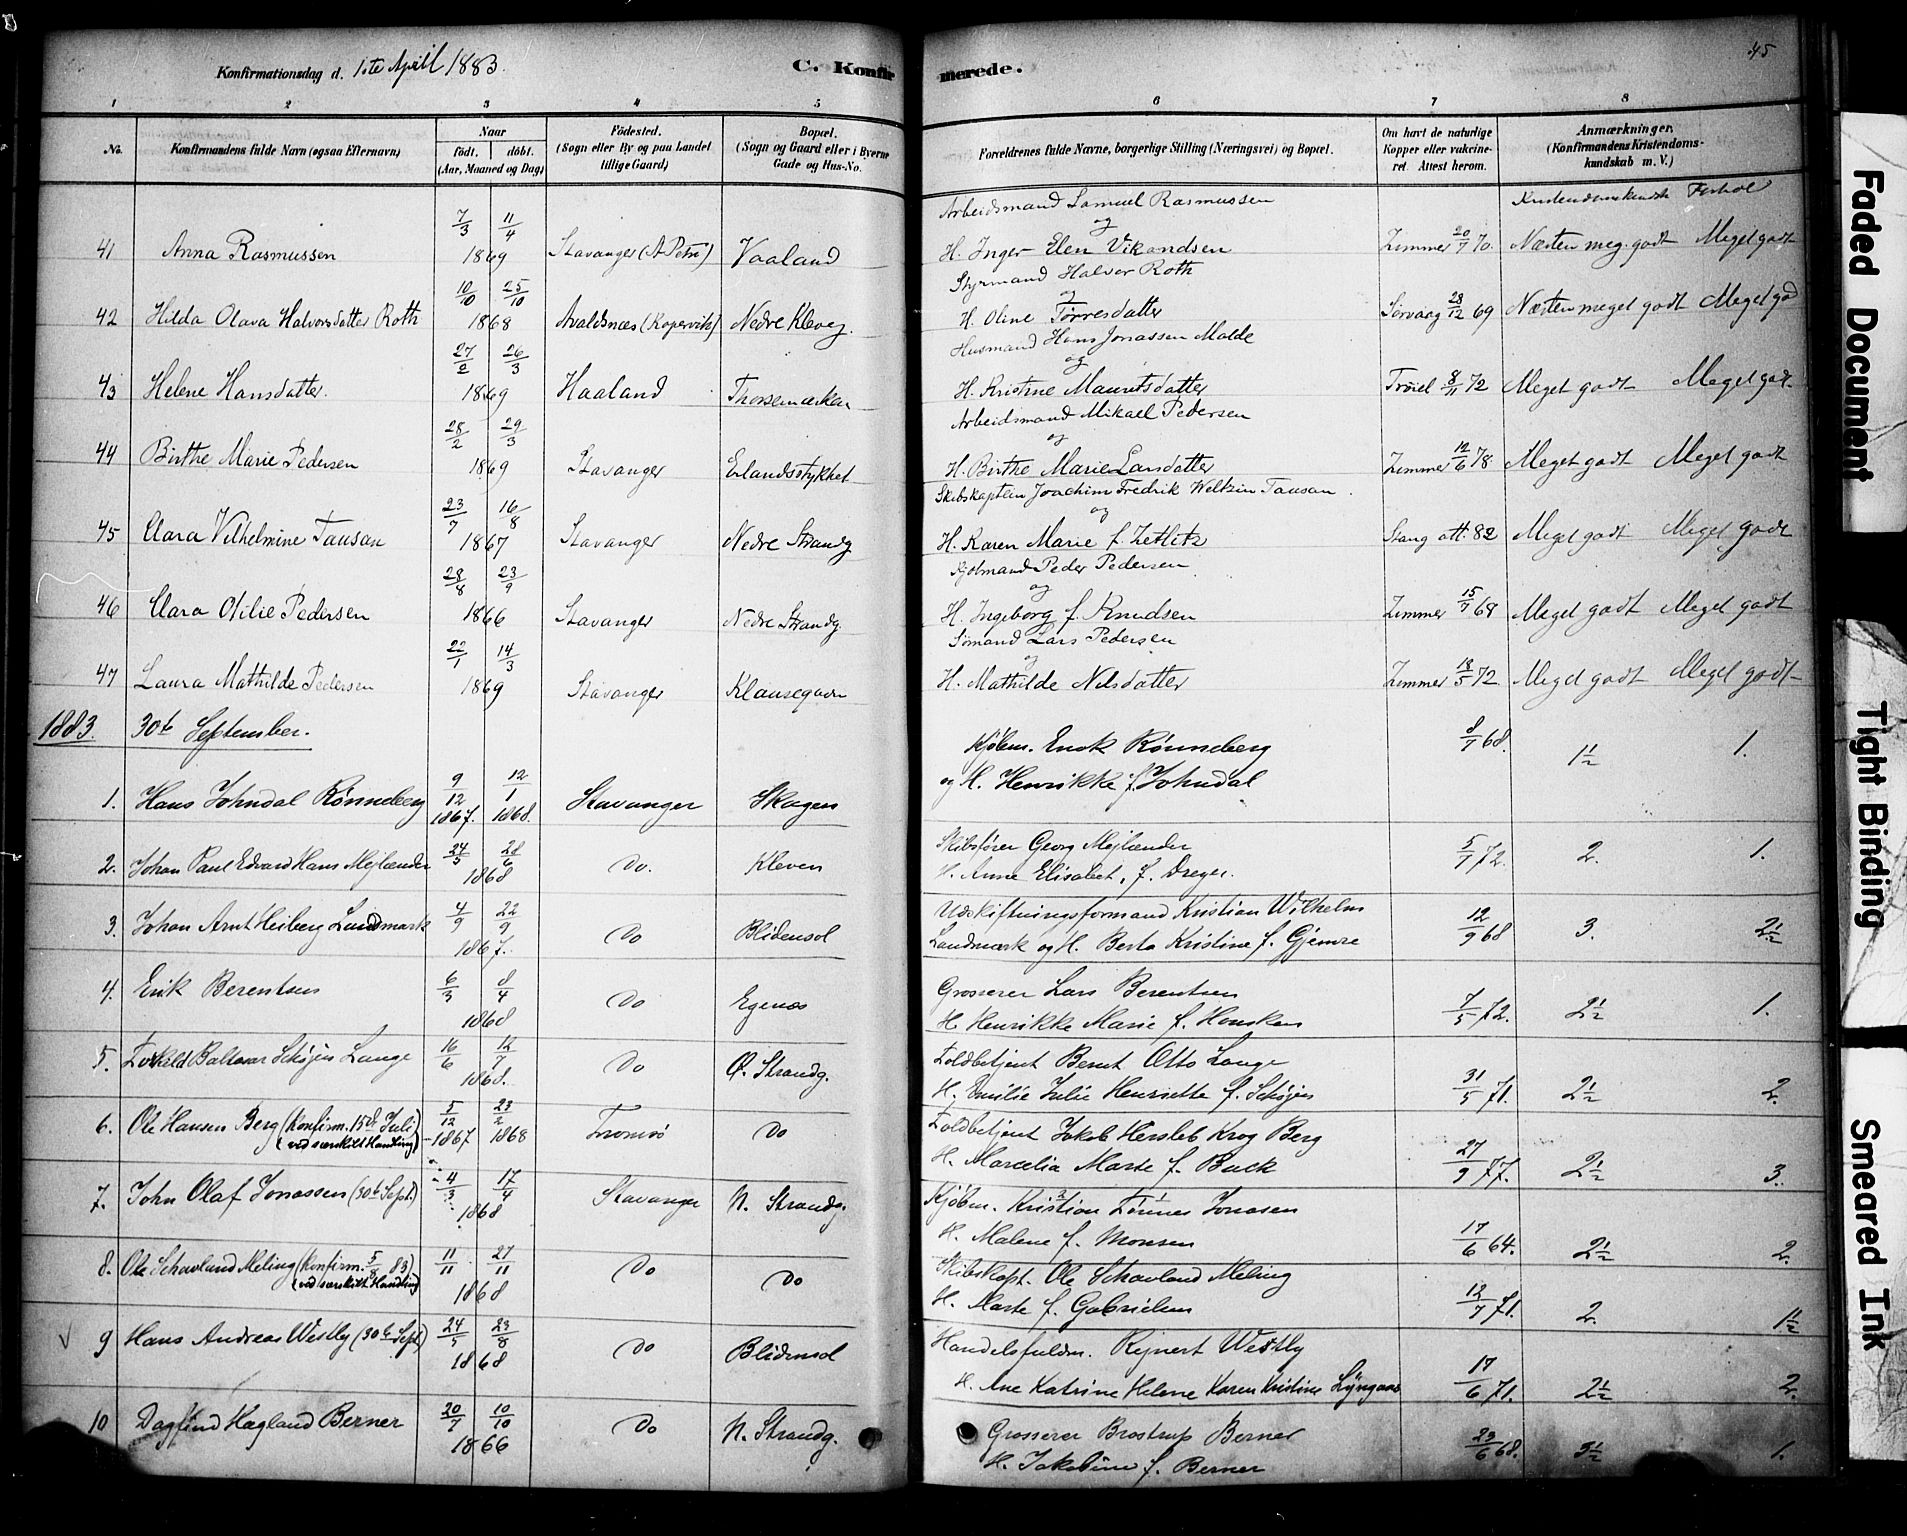 Konfirmationsdag d. 1ste April 1883.
C. Konfirmerede.
45
1 2 3 4 5 6 7 8
No.
Konfirmandens fulde Navn (ogsaa Efternavn)
Naar
født. døbt.
(Aar, Maaned og Dag)
Fødested.
(Sogn eller By og paa Landet
tillige Gaard)
Bopæl.
(Sogn og Gaard eller i Byerne
Gade og Hus-No.
Forældrenes fulde Navne, borgerlige Stilling (Næringsvei) og Bopæl.
Om havt de naturlige
Kopper eller vakcine-
ret Attest herom.
Anmærkninger.
(Konfirmandens Kristendoms-
kundskab m. V.)
Kristendomskundsk Forhol
Arbeidsmand Samuel Rasmussen
og
41 Anna Rasmussen 7/3 11/4 1869 Stavanger (St Petri) Vaaland H. Inger Elen Vikandsen Zimmer 20/7 70. Næsten meg. godt Meget godt
Styrmand Halvor Roth
og
42 Hilda Olava Halvorsdatter Roth 10/10 25/10 1868 Avaldsnæs (Kopervik) Nedre Kleveg. H. Oline Tørresdatter Sørvaag 28/12 69 Næsten meget godt Meget god
Husmand Hans Jonassen Malde
og
43 Helene Hansdatter. 27/2 26/3 1869 Haaland Thorsemarken H. Kristine Mauritsdatter 8/11 72 Meget godt Meget godt
Arbeidsmand Mikael Pedersen
og
44 Birthe Marie Pedersen 28/2 29/3 1869 Stavanger Erlandsstykket H. Birthe Marie Larsdatter Zimmer 12/6 78 Meget godt Meget godt
Skibskaptein Joachim Fredrik Weltzin Tausan
og
45 Clara Vilhelmine Tausan 23/7 16/8 1867 Stavanger Nedre Strandg H. Karen Marie f. Zetlitz Stang att. 82 Meget godt Meget godt
Kjøbmand Peder Pedersen
og
46 Clara Otilie Pedersen 28/8 23/9 1866 Stavanger Nedre Strandg. H. Ingeborg f. Knudsen Zimmer 15/7 68 Meget godt Meget godt
Sømand Lars Pedersen
og
47 Laura Mathilde Pedersen 22/1 14/3 1869 Stavanger Klausegaden H. Mathilde Nilsdatter Zimmer 18/5 72 Meget godt Meget godt
1883. 30te September.
Kjøbm. Enok Rønneberg 8/7 68. 1½ 1.
og H. Henrikke f. Johndal
1. Hans Johndal Rønneberg 9/12 1867. 12/1 1868. Stavanger Skagen
Skibsfører Georg Mejlænder
2. Johan Paul Edvard Hans Mejlænder 24/5 28/6 1868 Do. Kleven 5/7 72. 2. 1.
H. Anne Elisabet, f. Dreyer.
Udskiftningsformand Kristian Wilhelm
3. Johan Arnt Heiberg Landmark 4/9 22/9 1867. Do Blidensol 12/9 68 3. 2½
Landmark og H. Berta Kristine f. Gjemre
4. Erik Berentsen 6/3 8/4 1868 Do Egenæs Grosserer Lars Berentsen
H. Henrikke Marie f. Housken 7/5 72. 2½ 1.
5. Baltasar Schøjen Lange 16/6 12/7 1868. Do Ø. Strandg. Toldbetjent Bernt Otto Lange
H. Emilie Julie Henriette f. Schøjen 31/5 71. 2½ 2.
6. Ole Hansen Berg (Konfirm. 15de Juli) 5/12 1867 23/2 1868 Tromsø Do Toldbetjent Jakob Hersleb Krog Berg
(ved særskilt Handling)
H. Marcelia Marte f. Buck 27/9 77. 2½ 3.
7. John Olaf Jonassen (30te Sept.) 4/3 17/4 1868 Stavanger N. Strandg. Kjøbm. Kristian Tønnes Jonasen
H. Malene f. Monsen 17/6 64. 2½ 2.
8. Ole Schavland Meling (Konfirm. 5/8 83) 11/11 27/11 1868 Do Do Skibskapt. Ole Schavland Meling
(ved særskilt Handling
H. Marte f. Gabrielsen 12/7 71. 2. 1½
9 Hans Andreas Westly (30te Sept) 24/5 23/8 1868 Do Blidensol Handelsfuldm. Rejnert Westly
H. Ane Katrine Helene Karen Kristine Lyngaas 17/6 71. 2½ 2.
10 Dagfind Hagland Berner 20/7 10/10 1866 Do N. Strandg. Grosserer Brostrup Berner
H. Jakobine f. Berner 23/6 68. 3½ 1.
Faded Document
Tight Binding
Smeared Ink